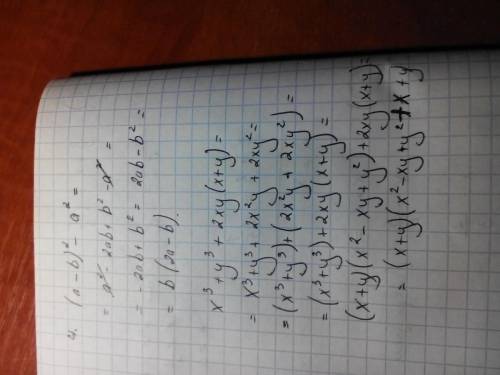 4. (a-b)² - a² =
= a² - 2ab + b² - a² =
= -2ab + b² = 2ab - b² =
= b(2a-b).
x³ + y³ + 2xy(x+y) =
= x³ + y³ + 2x²y + 2xy² =
= (x³+y³) + (2x²y + 2xy²) =
= (x³+y³) + 2xy(x+y) =
(x+y)(x² - xy + y²) + 2xy(x+y) =
= (x+y)(x² - xy + y² + x + y